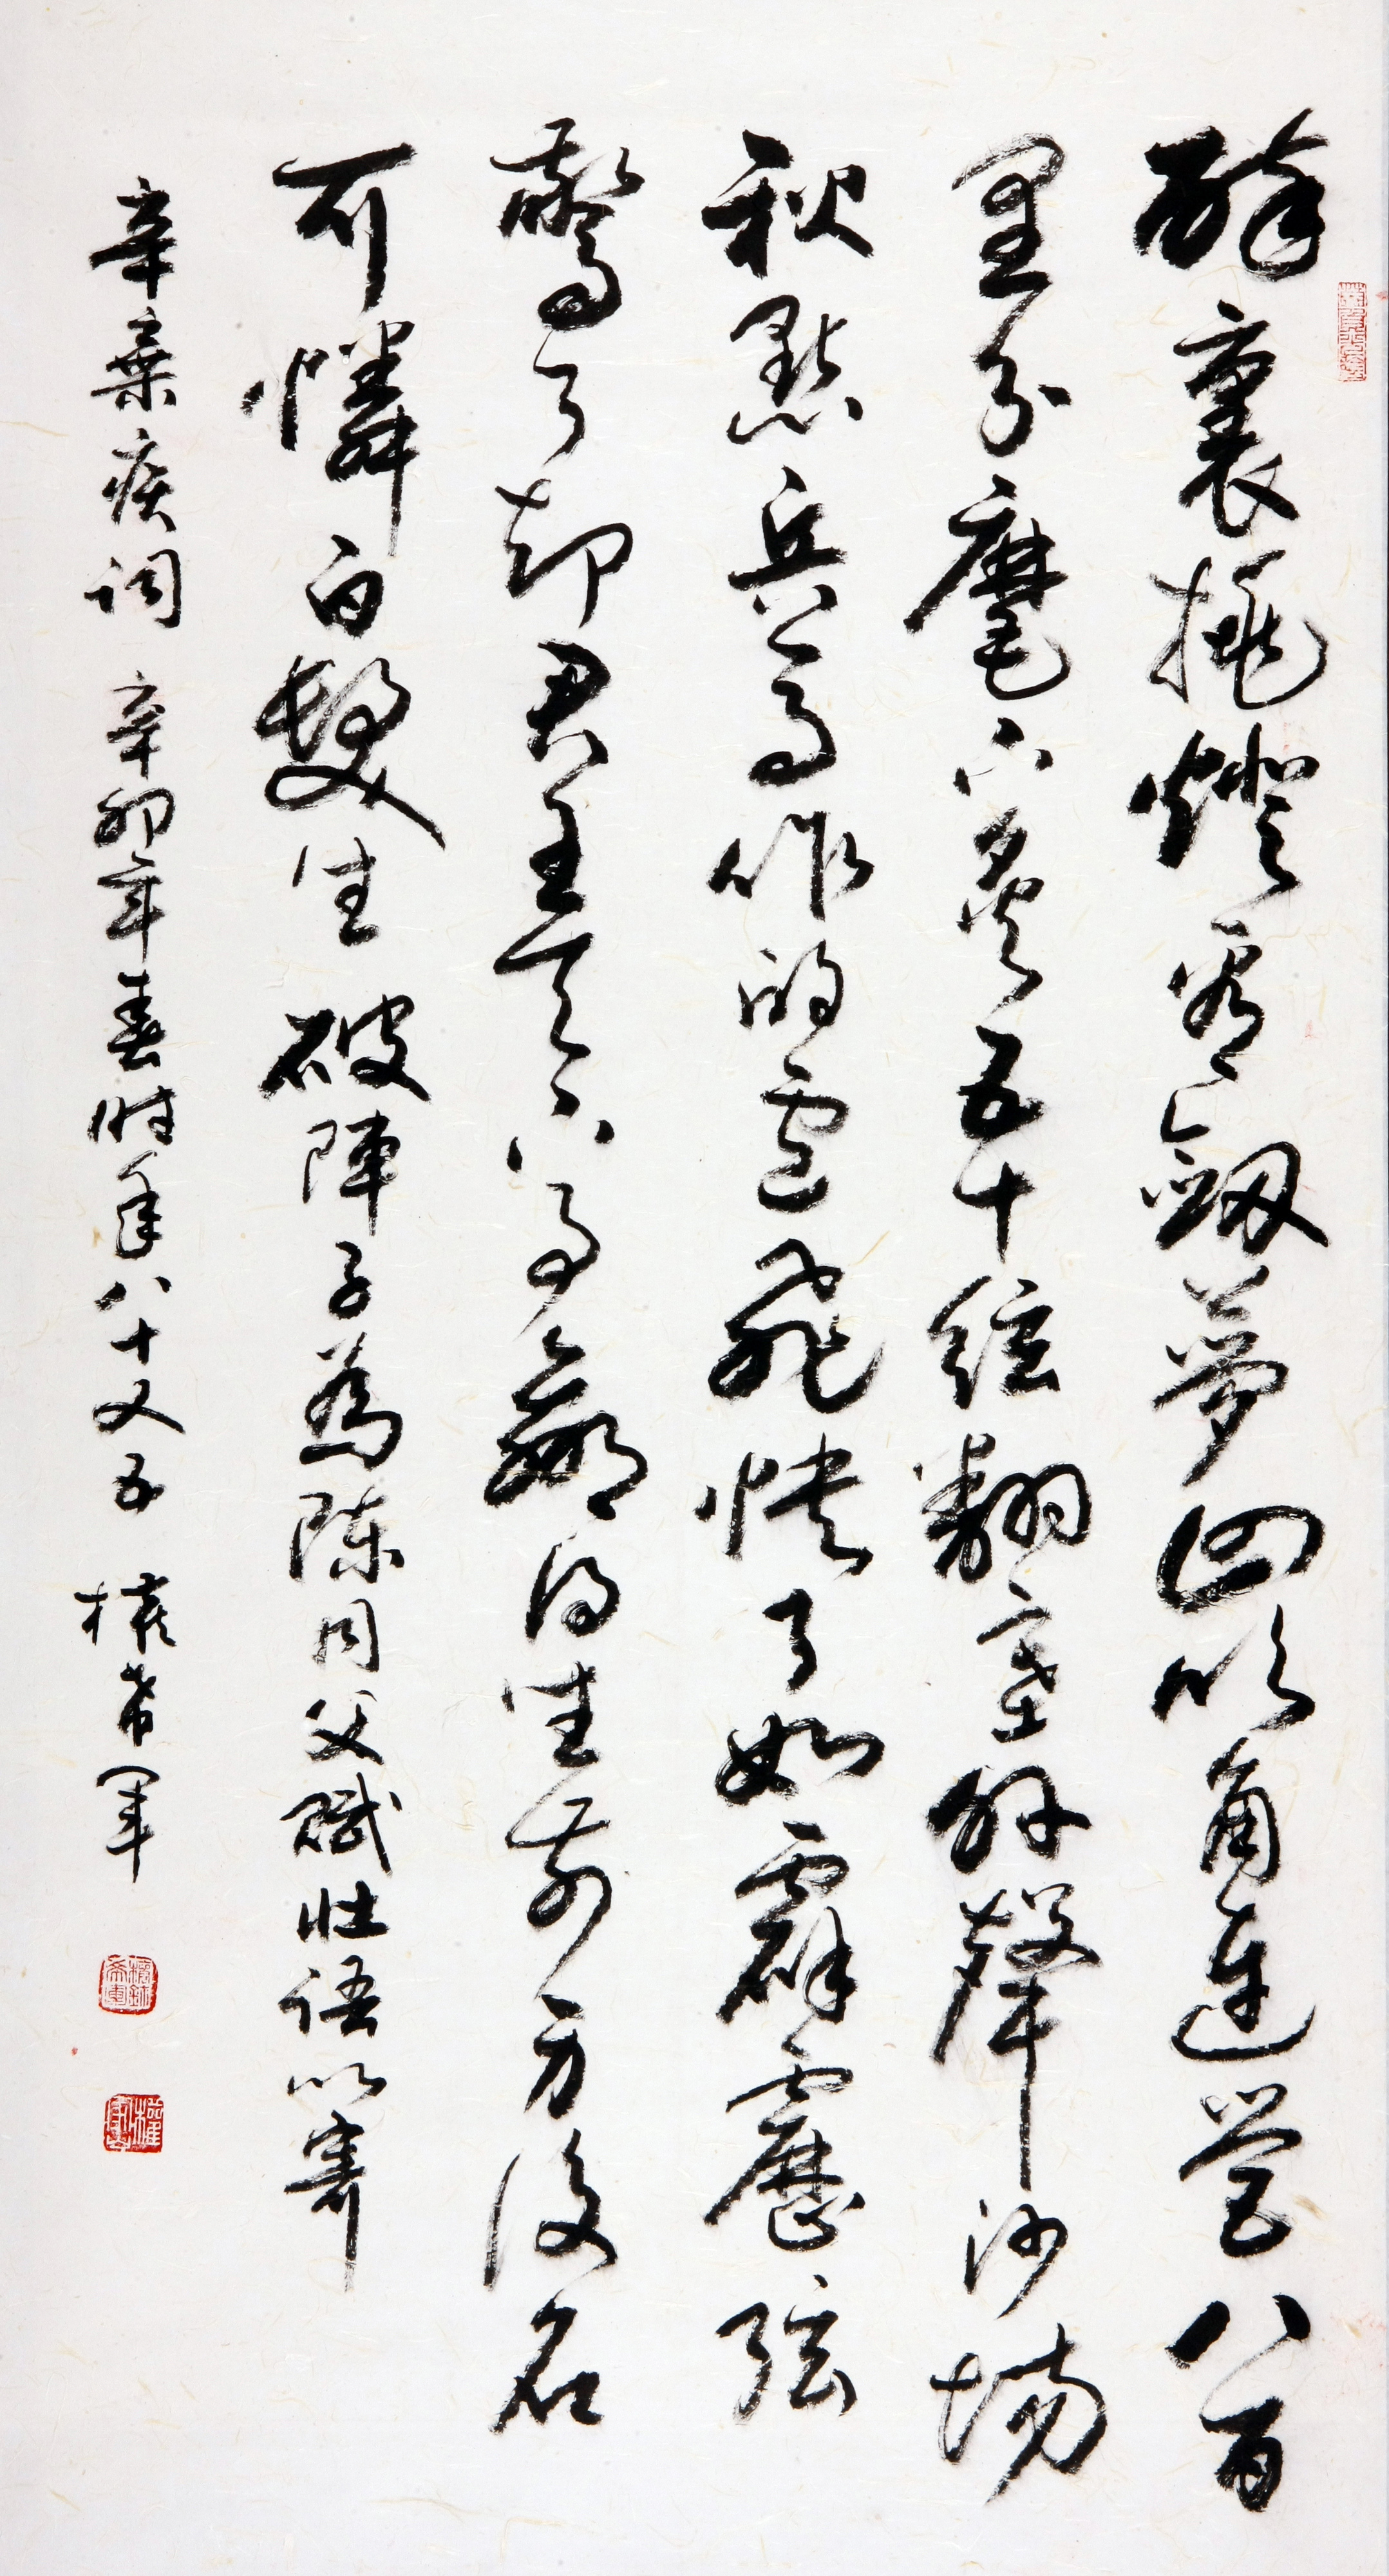 醉裏挑燈看劒夢回吹角連營八百
里分麾下炙五十絃翻塞外聲沙場
秋點兵馬作的盧飛快弓如霹靂弦
驚了却君王天下事贏得生前身後名
可憐白髮生 破陣子為陳同父賦壯語以寄
辛棄疾詞 辛卯年春時年八十又五 權希軍